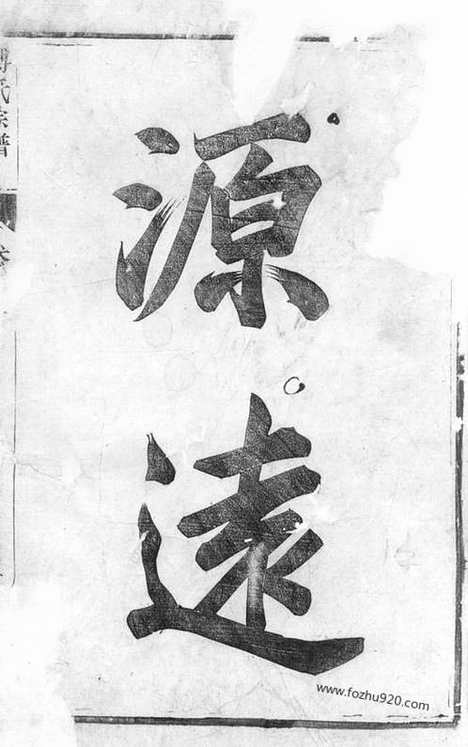 源
遠
氏宗譜
卷
www.fozhu920.com